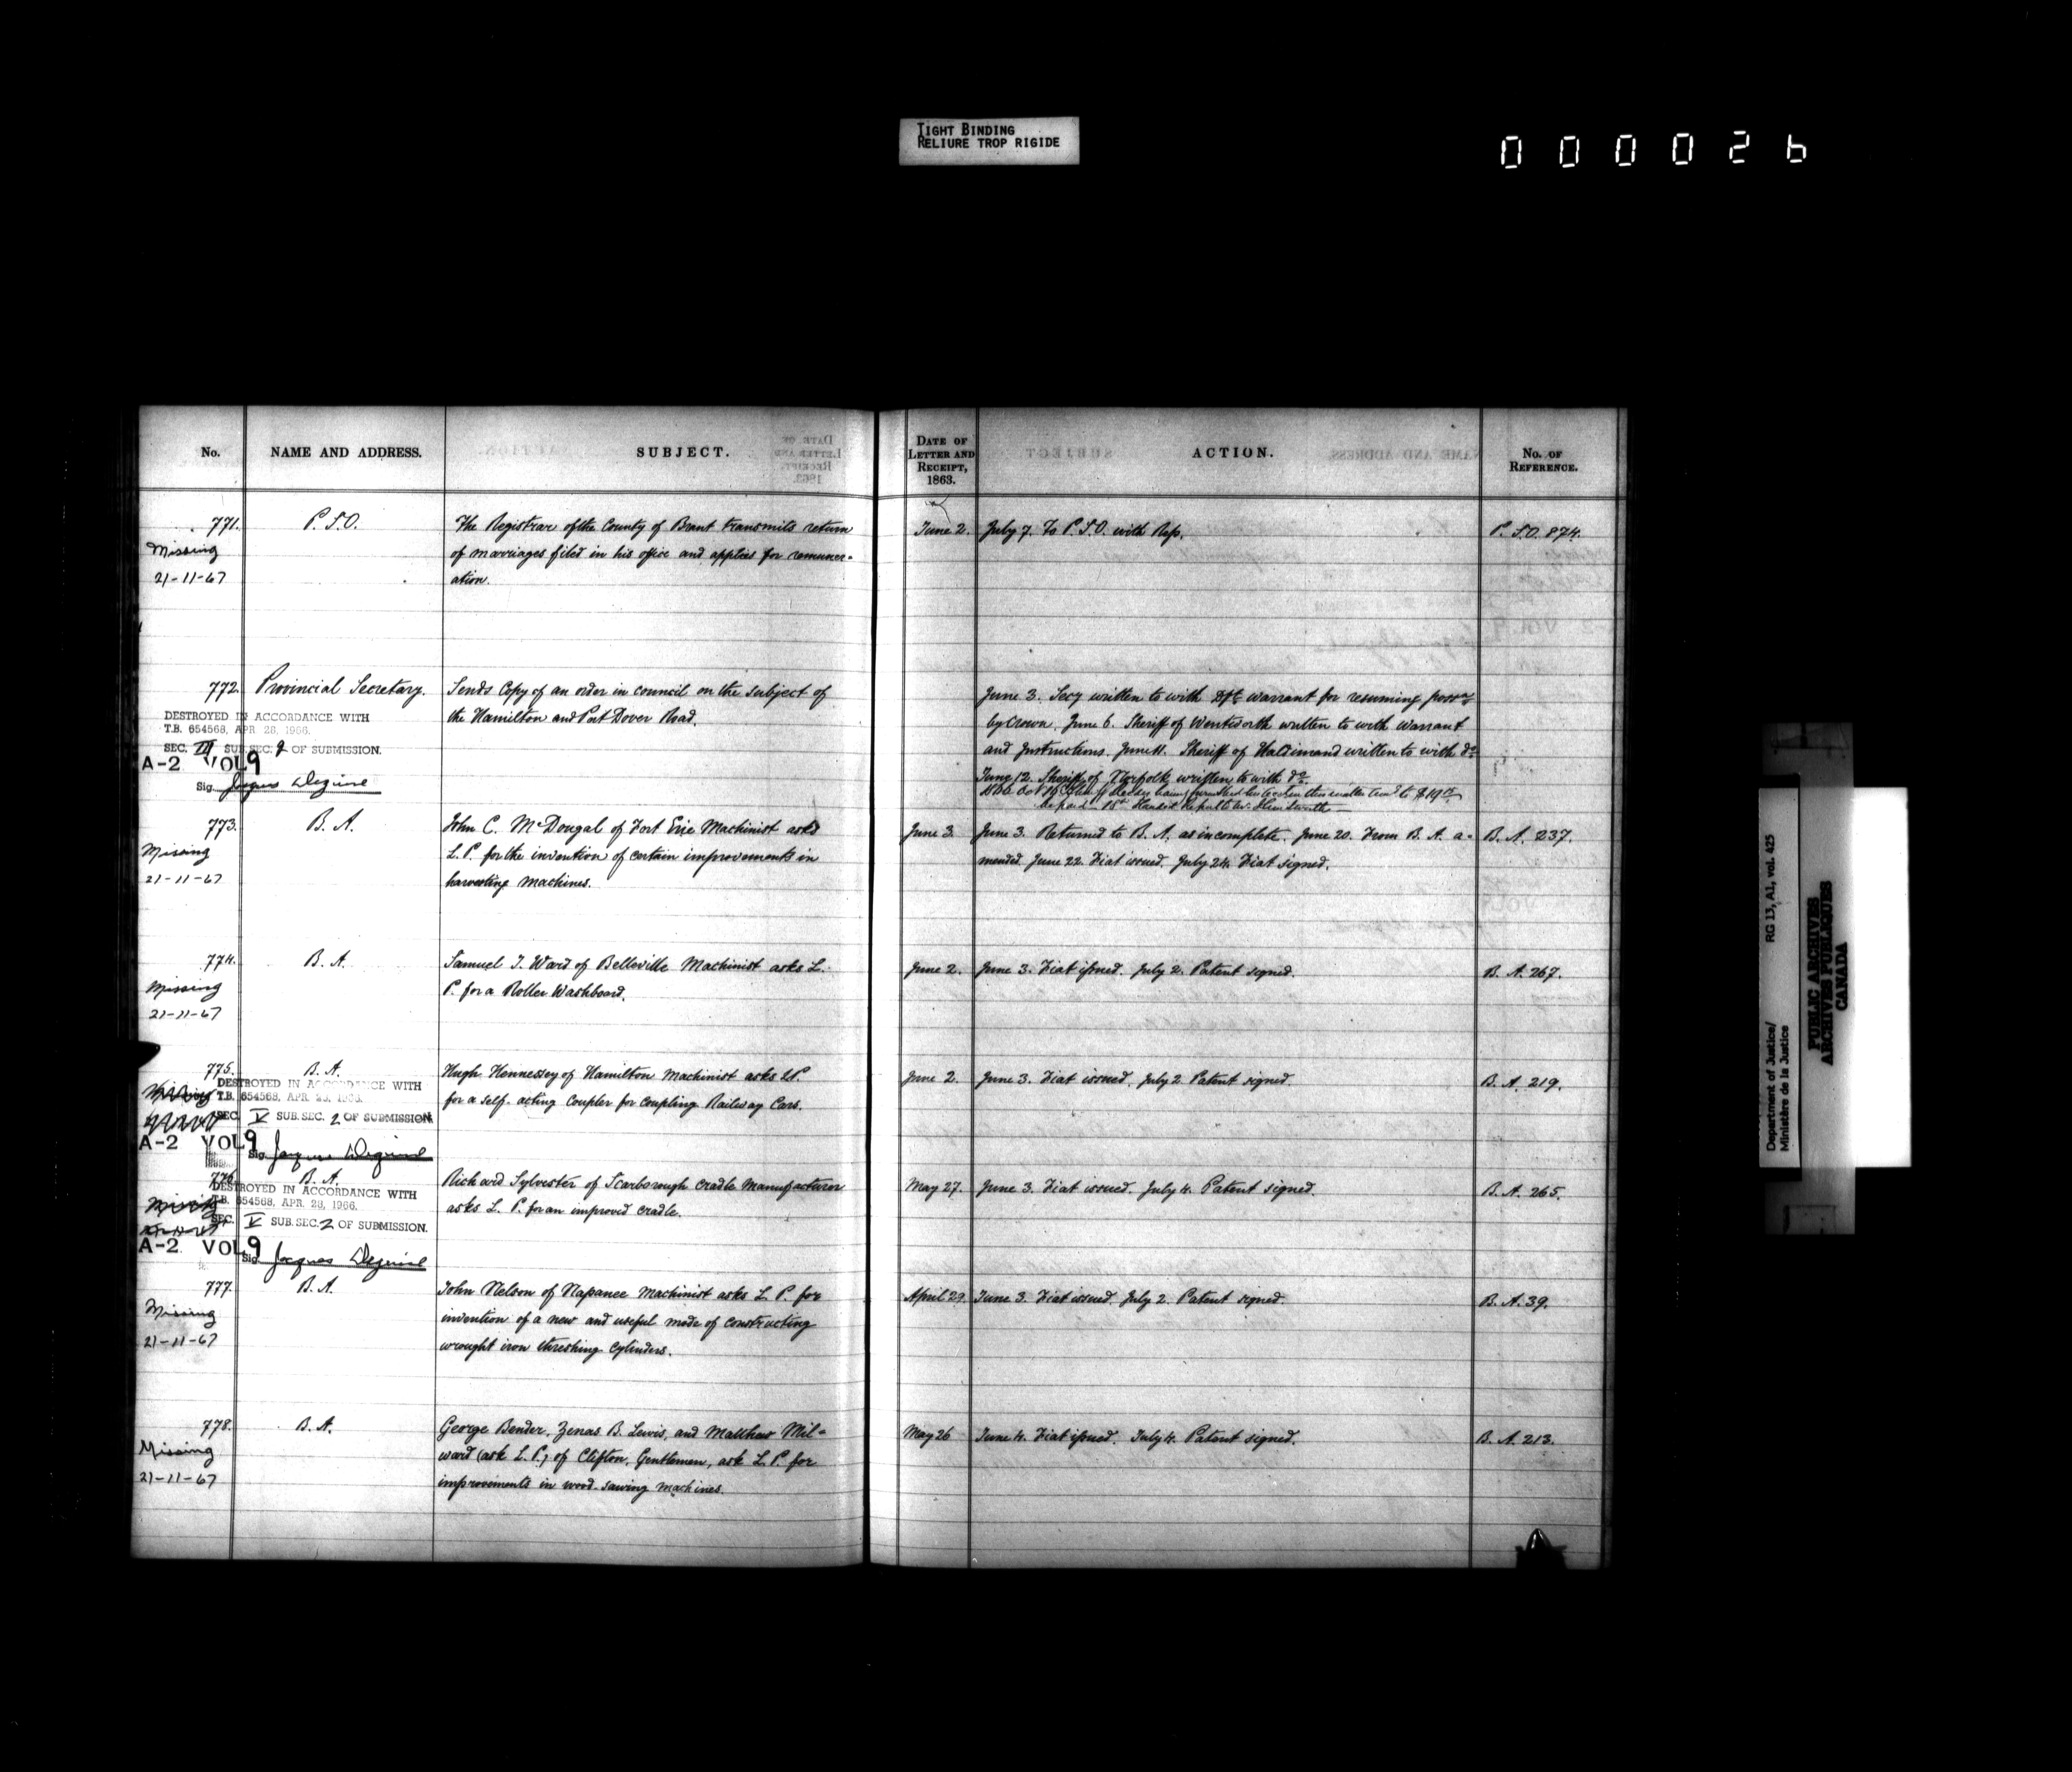 TIGHT BINDING
RELIURE TROP RIGIDE
000026
No.
NAME AND ADDRESS.
SUBJECT.
DATE OF
LETTER AND
RECEIPT,
1863.
ACTION.
No. OF
REFERENCE.
771.
P. S. O.
The Registrar of the County of Brant transmits return
of marriages filed in his office and applies for remuner-
ation.
Missing
21-11-67
June 2.
July 7. To P. S. O. with Rep.
P. S. O. 874.
772.
Provincial Secretary.
Sends Copy of an order in council on the subject of
the Hamilton and Port Dover Road.
DESTROYED IN ACCORDANCE WITH
T.B. 654568, APR 28, 1966.
SEC. III SUB SEC. 2 OF SUBMISSION.
A-2 VOL 9
Sig.
June 3. Secy written to with dft warrant for resuming possn
by Crown. June 6. Sheriff of Wentworth written to with warrant
and Instructions. June 11. Sheriff of Haldimand written to with do
June 12. Sheriff of Norfolk written to with do.
773.
B. A.
John C. McDougal of Fort Erie Machinist asks
L. P. for the invention of certain improvements in
harvesting machines.
Missing
21-11-67
June 3
June 3. Returned to B. A. as incomplete. June 20. From B. A. a-
mended. June 22. Fiat issued. July 24. Fiat signed.
B. A. 237.
774.
B. A.
Samuel T. Ward of Belleville Machinist asks L.
P. for a Roller Washboard.
Missing
21-11-67
June 2.
June 3. Fiat issued. July 2. Patent signed.
B. A. 267.
775.
B. A.
Hugh Hennessey of Hamilton Machinist asks L.P.
for a self-acting Coupler for coupling Railway Cars.
DESTROYED IN ACCORDANCE WITH
T.B. 654568, APR. 28, 1966.
SEC. V SUB. SEC. 2 OF SUBMISSION.
A-2 VOL 9
Sig. Jacques
June 2.
June 3. Fiat issued. July 2 Patent signed.
B. A. 219.
776.
B. A.
Richard Sylvester of Scarborough Cradle Manufacturer
asks L. P. for an improved cradle.
DESTROYED IN ACCORDANCE WITH
T.B. 654568, APR. 28, 1966.
SEC. V SUB. SEC. 2 OF SUBMISSION.
A-2 VOL 9
Sig. Jacques
May 27.
June 3. Fiat issued. July 4. Patent signed.
B. A. 265.
777.
B. A.
John Nelson of Napanee Machinist asks L. P. for
invention of a new and useful mode of constructing
wrought iron threshing Cylinders.
Missing
21-11-67
April 29.
June 3. Fiat issued. July 2. Patent signed.
B. A. 39.
778.
B. A.
George Bender, Zenas B. Lewis, and Matthew Mil-
ward (ask L. P.) of Clifton, Gentlemen, ask L. P. for
improvements in wood-sawing machines.
Missing
21-11-67
May 26
June 4. Fiat issued. July 4. Patent signed.
B. A. 213.
Department of Justice/
Ministère de la Justice
RG 13, A1, vol. 425
PUBLIC ARCHIVES
ARCHIVES PUBLIQUES
CANADA